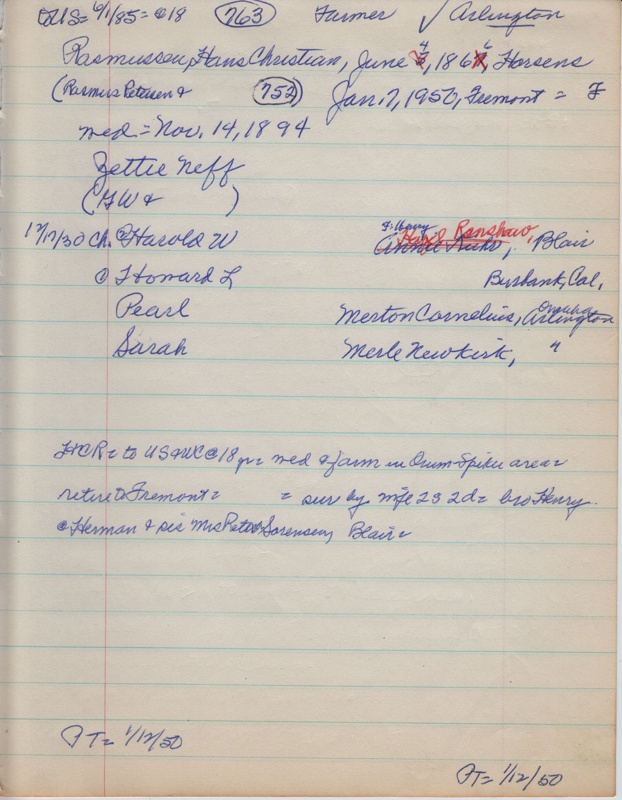 to US= 6/1/85= @18 763 Farmer ✓ Arlington
Rasmussen, Hans Christian, June 4, 1866, Horsens
(Rasmus Petersen & 752) Jan. 7, 1950, Fremont = F
med = Nov. 14, 1894
Zettie Neff
(GW & )
12/17/30 Ch. @ Harold W Hazel Ranshaw, Blair
@ Howard L Burbank, Cal,
Pearl Merton Cornelius, Omaha Arlington
Sarah Merle Newkirk, "
HCR = to US & WC @ 18 yr = med & farm in Orum-Spiker area =
retire to Fremont = = sur by wife 2s 2d = bro Henry
@ Herman & sis Mrs Peter Sorensen, Blair =
PT= 1/12/50
PT= 1/12/50